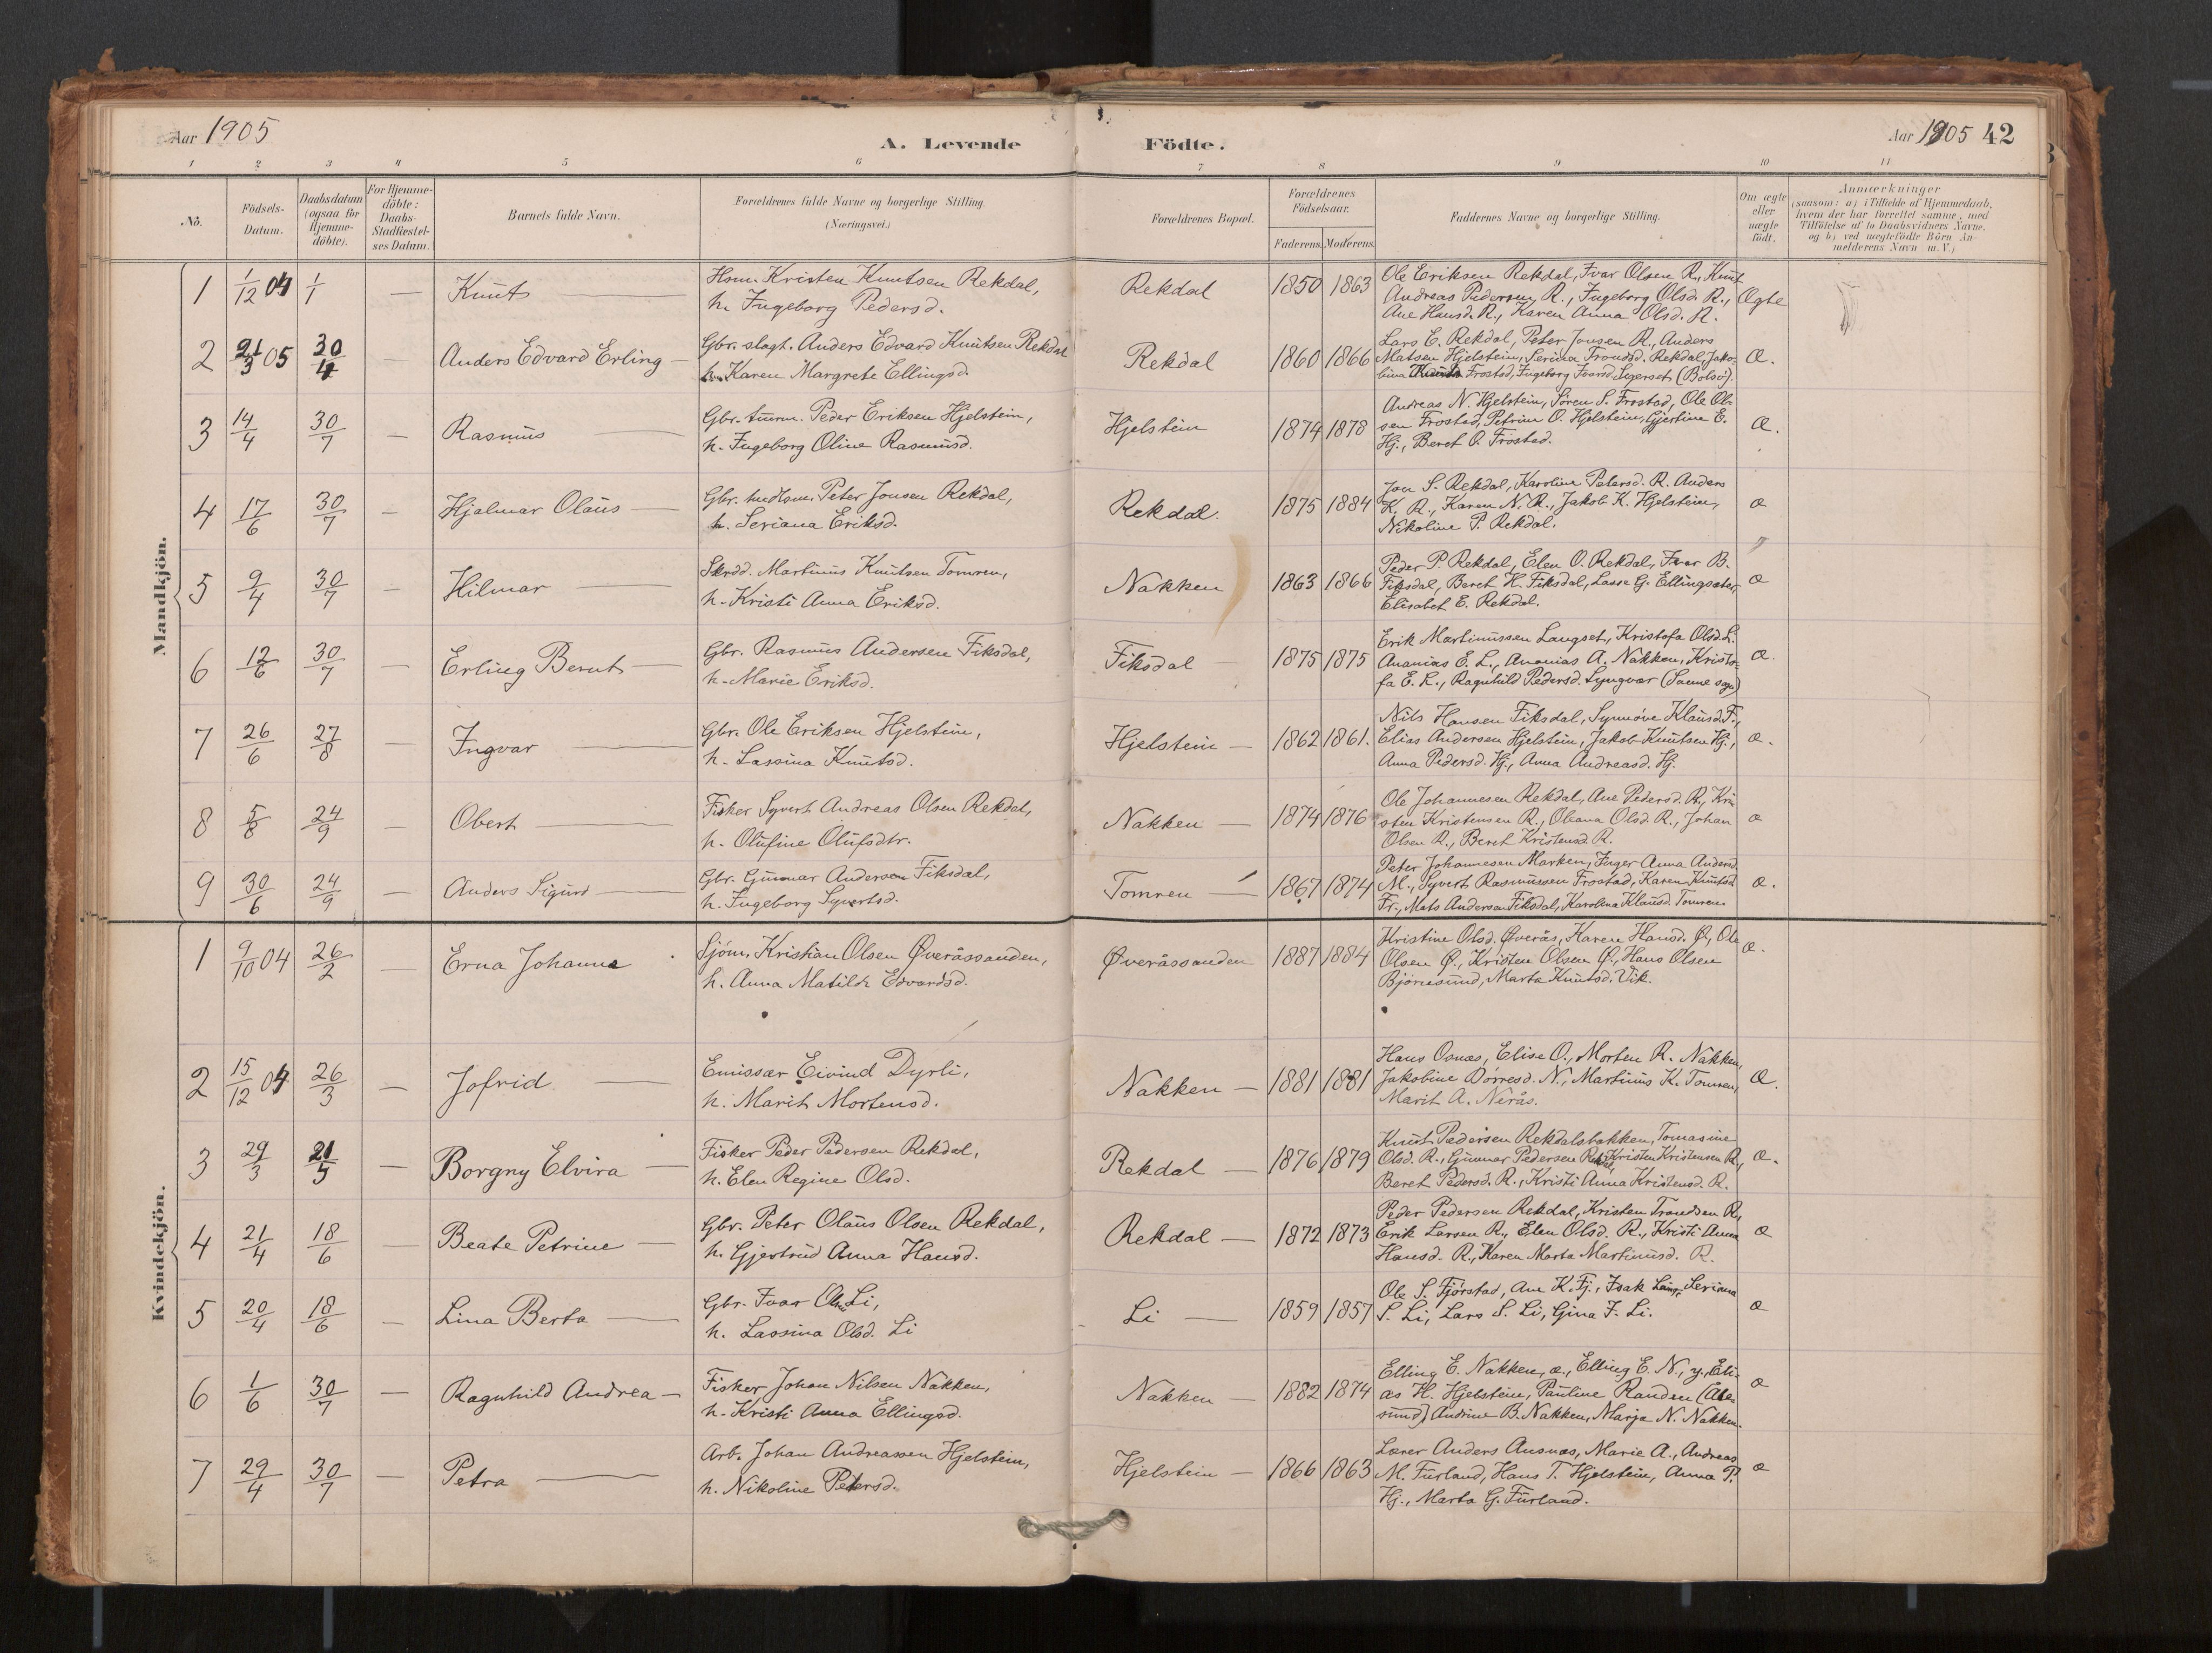 Aar 1905
A. Levende
Födte.
Aar 1905 42
1 2 3 4 5 6 7 8 9 10 11
No.
Födsels-Datum.
Daabsdatum (ogsaa for Hjemme-döbte).
For Hjemme-döbte: Daabs-Stadfæstel-ses Datum.
Barnets fulde Navn.
Forældrenes fulde Navne og borgerlige Stilling.
(Næringsvei.)
Forældrenes Bopæl.
Forældrenes Födselsaar.
Faderens. Moderens.
Faddernes Navne og borgerlige Stilling.
Om ægte eller uægte födt.
Anmærkninger
(saasom: a) i Tilfælde af Hjemmedaab,
hvem der har forrettet samme, med
Tilföielse af to Daabsvidners Navne,
og b) ved uægtefödte Börn An-
melderens Navn m. V.)
Mandkjön.
1 1/12 04 1/1 — Knut — Hsm. Kristen Knutsen Rekdal,
h. Ingeborg Pedersd.
Rekdal 1850 1863 Ole Eriksen Rekdal, Ivar Olsen R., Knut
Andreas Pedersen R., Ingeborg Olsd. R.,
Ane Hansd. R., Karen Anna Olsd. R.
Ægte
2 21/3 05 30/4 — Anders Edvard Erling — Gbr. slagt. Anders Edvard Knutsen Rekdal
h. Karen Margrete Ellingsd.
Rekdal 1860 1866 Lars E. Rekdal, Peter Jonsen R., Anders
Matsen Hjelstein, Serina Trondsd. Rekdal, Jako-
bina Frostad, Ingeborg Ivarsd. (Bolsö).
Æ.
3 14/4 30/7 — Rasmus — Gbr. Peder Eriksen Hjelstein,
h. Ingeborg Oline Rasmusd.
Hjelstein 1874 1878 Andreas N. Hjelstein, Sören S. Frostad, Ole Ol-
sen Frostad, Petrine O. Hjelstein, Gjertine E.
Hj., Beret O. Frostad.
Æ.
4 17/6 30/7 — Hjalmar Olaus — Gbr. Peter Jonsen Rekdal,
h. Seriana Eriksd.
Rekdal. 1875 1884 Jon S. Rekdal, Karoline Petersd. R. Anders
K. R., Karen N. R., Jakob K. Hjelstein,
Nikoline P. Rekdal.
æ
5 9/4 30/7 — Hilmar — Skrdd. Martinus Knutsen Tomren,
h. Kristi Anna Eriksd.
Nakken 1863 1866 Peder P Rekdal, Elen O. Rekdal, Ivar B.
Fiksdal, Beret K. Fiksdal, Lasse G. Ellingsæter,
Elisabet E. Rekdal.
æ
6 12/6 30/7 — Erling Bernt — Gbr. Rasmus Andersen Fiksdal,
h. Marie Eriksd.
Fiksdal 1875 1875 Erik Martinussen Langset, Kristofa Olsd. L.
Ananias E. L., Ananias A. Nakken, Kristo-
fa E. L., Ragnhild Pedersd. Lyngvær (Samme sogn)
æ.
7 26/6 27/8 — Ingvar — Gbr. Ole Eriksen Hjelstein,
h. Lassina Knutsd.
Hjelstein — 1862 1861. Nils Hansen Fiksdal, Synnöve Klausd. F.,
Elias Andersen Hjelstein, Jakob Knutsen Hj.,
Anna Pedersd. Hj., Anna Andreasd. Hj.
æ.
8 5/8 24/9 — Obert — Fisker Syvert Andreas Olsen Rekdal,
h. Olufine Olufsdtr.
Nakken — 1874 1876 Ole Johannesen Rekdal, Ane Pedersd. R., Kri-
sten Kristensen R., Oleana Olsd. R., Johan
Olsen R., Beret Kristensd. R.
æ
9 30/6 24/9 — Anders Sigurd — Gbr. Gunnar Andersen Fiksdal,
h. Ingeborg Syvertsd.
Tomren — 1867 1874 Peter Johannesen Marken, Inger Anna Andersd.
M., Syvert Rasmussen Frostad, Karen Knutsd.
Fr., Mats Andersen Fiksdal, Karolina Klausd. Tomren.
æ.
Kvindekjön.
1 9/10 04 26/2 — Erna Johanna Sjöm. Kristian Olsen Øveråssanden,
h. Anna Matilde Edvardsd.
Øveråssanden 1887 1884 Kristine Olsd. Øverås, Karen Hansd. Ø., Ole
Olsen Ø., Kristen Olsen Ø., Hans Olsen
Björnsund, Marta Knutsd. Vik.
æ.
2 15/12 04 26/3 — Jofrid — Emissær Eivind Dyrli,
h. Marit Mortensd.
Nakken — 1881 1881 Hans Osnæs, Elise O., Morten R. Nakken,
Jakobine Dørresd. N., Martinus K. Tomren,
Marit A. Nerås.
Æ.
3 29/3 21/5 — Borgny Elvira — Fisker Peder Pedersen Rekdal,
h. Elen Regine Olsd.
Rekdal — 1876 1879 Knut Pedersen Rekdalsbakken, Tomasine
Olsd. R., Gunnar Pedersen Rekdal, Kristen Kristensen R.,
Beret Pedersd. R., Kristi Anna Kristensd. R.
æ.
4 21/4 18/6 — Beate Petrine — Gbr. Peter Olaus Olsen Rekdal,
h. Gjertrud Anna Hansd.
Rekdal — 1872 1873 Peder Pedersen Rekdal, Kristen Trondsen R.,
Erik Larsen R., Elen Olsd. R., Kristi Anna
Hansd. R., Karen Marta Martinusd. R.
æ
5 20/4 18/6 — Lina Berta — Gbr. Ivar Olsen Li,
h. Lassina Olsd. Li
Li — 1859 1857 Ole S. Fjörstad, Ane K. Fj., Isak Seriana
S. Li, Lars S. Li, Gina I. Li.
æ
6 1/6 30/7 — Ragnhild Andrea — Fisker Johan Nilsen Nakken,
h. Kristi Anna Ellingsd.
Nakken — 1882 1874 Elling E. Nakken, æ., Elling E. N., y., Eli-
as H. Hjelstein, Pauline Randen (Ale-
sund) Andrine B. Nakken, Marja N. Nakken.
æ
7 29/4 30/7 — Petra — Arb. Johan Andreassen Hjelstein,
h. Nikoline Petersd.
Hjelstein — 1866 1863 Lærer Anders Ausnæs, Marie A., Andreas
M. Furland, Hans T. Hjelstein, Anna P.
Hj., Marta G. Furland.
æ